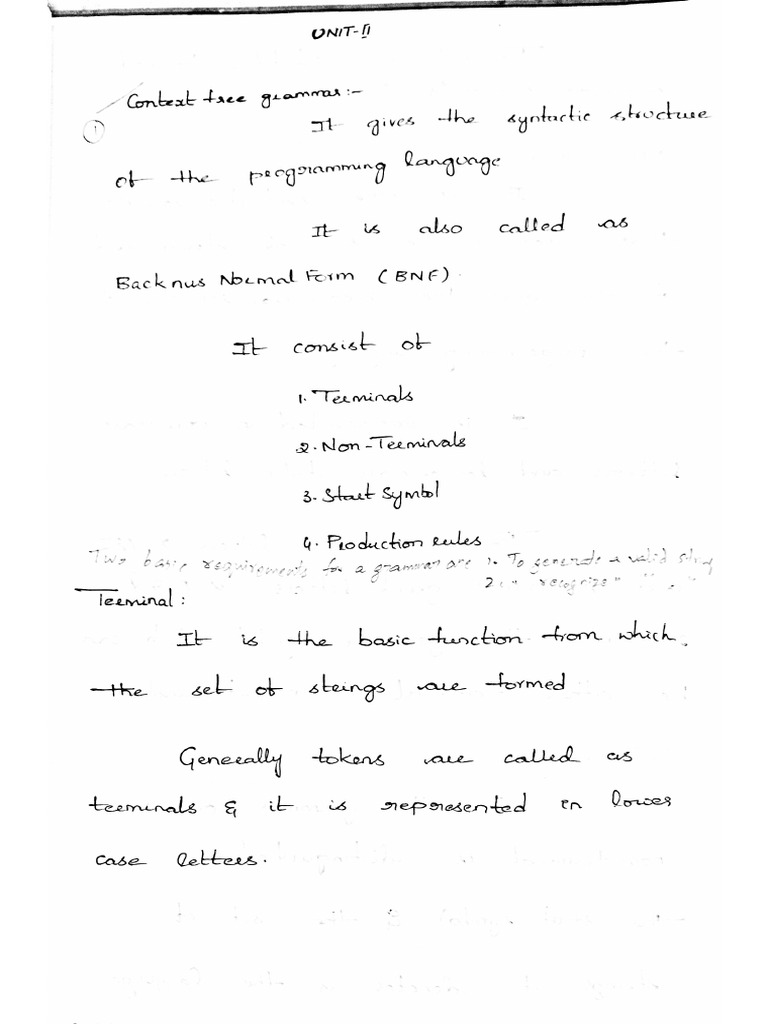 UNIT-II
Context free grammar:-
1
It gives the syntactic structure
of the programming language
It is also called as
Backnus Normal Form (BNF).
It consist of
1. Terminals
2. Non-Terminals
3. Start Symbol
4. Production rules
Two basic requirements for a grammar are 1. To generate a valid
2. " recognize" " "
Terminal:
It is the basic function from which
the set of strings are formed
Generally tokens are called as
terminals & it is represented in lower
case letters.